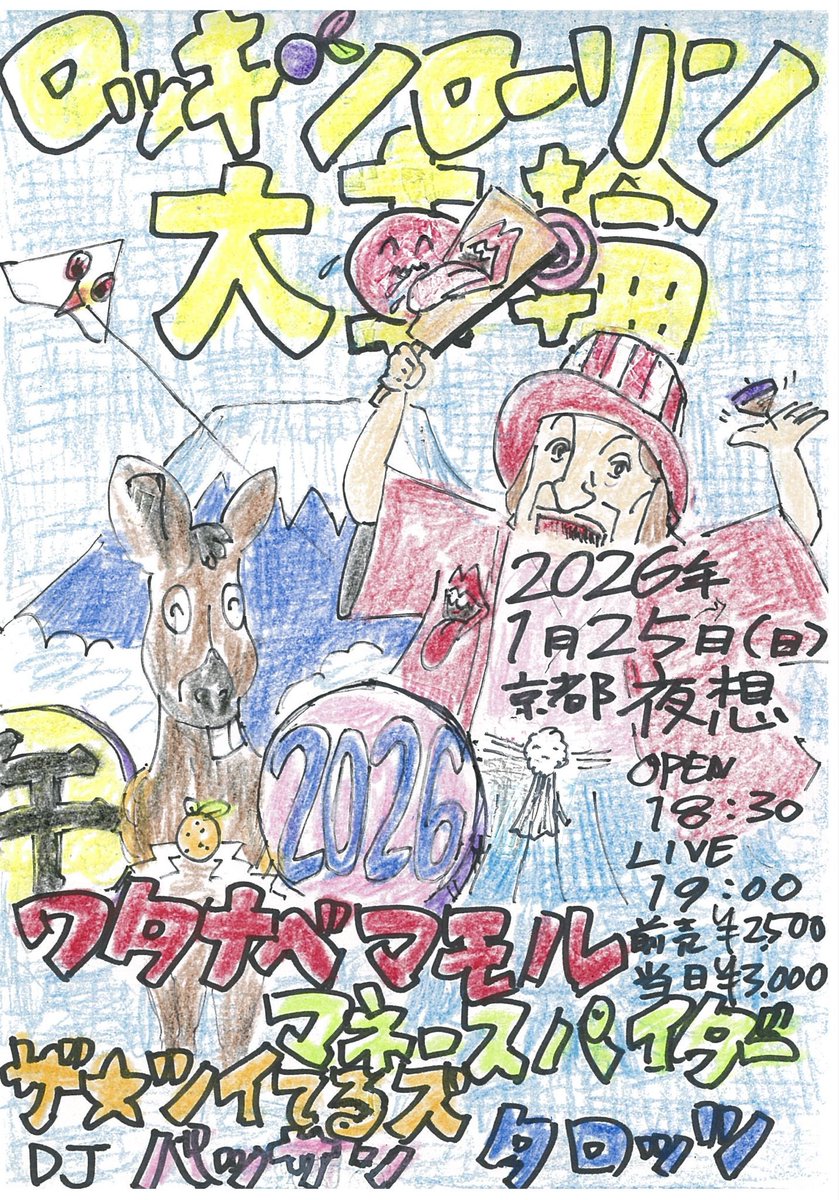 ロッキンローリン
大車輪
2026年
1月25日(日)
京都 夜想
OPEN
18:30
LIVE
19:00
前売¥2,500
当日¥3,000
2026
ワタナベマモル
マネースパイダー
ザ★ツイてるズ
DJ バッサン
タロッツ